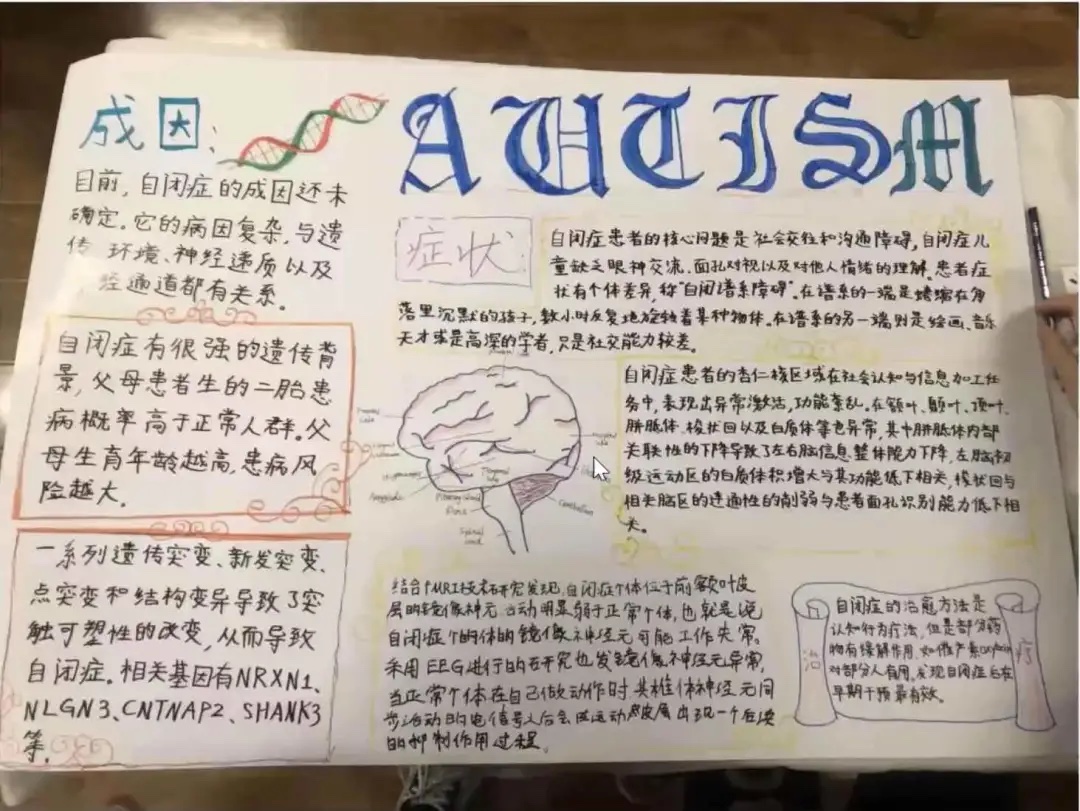 成因:
目前,自闭症的成因还未
确定。它的病因复杂,与遗
传 环境、神经递质以及
经通道都有关系。
自闭症有很强的遗传背
景,父母患者生的二胎患
病概率高于正常人群。父
母生育年龄越高,患病风
险越大.
一系列遗传突变、新发突变、
点突变和结构变异导致了突
触可塑性的改变,从而导致
自闭症.相关基因有NRXN1、
NLGN3、CNTNAP2、SHANK3
等.
AUTISM
症状
自闭症患者的核心问题是社会交往和沟通障碍,自闭症儿
童缺乏眼神交流.面孔对视以及对他人情绪的理解.患者症
状有个体差异,称"自闭谱系障碍".在谱系的一端是蜷缩在角
落里沉默的孩子,数小时反复地旋转着某种物体.在谱系的另一端则是绘画、音乐
天才或是高深的学者,只是社交能力较差。
Amygdala
Pituitary Gland
Pons
Spinal
Cord
Cerebellum
自闭症患者的杏仁核区域在社会认知与信息加工任
务中,表现出异常激活,功能紊乱.在额叶、颞叶、顶叶、
胼胝体、梭状回以及白质体等也异常,其中胼胝体内部
关联性的下降导致了左右脑信息整体能力下降,左脑初
级运动区的白质体积增大与其功能低下相关,梭状回与
相关脑区的连通性的削弱与患者面孔识别能力低下相
关。
结合fMRI技术研究发现,自闭症个体位于前额叶皮
层的镜像神元活动明显弱于正常个体,也就是说
自闭症个的体的镜像神经元可能工作失常。
采用EEG进行的研究也发镜像神经元异常,
当正常个体在自己做动作时其椎体神经元同
步活动的电信号
出现一个
的抑制作用过程.
治疗
自闭症的治愈方法是
认知行为疗法,但是部分药
物有缓解作用.如催产素oxytocin
对部分人有用.发现自闭症后在
早期干预最有效。